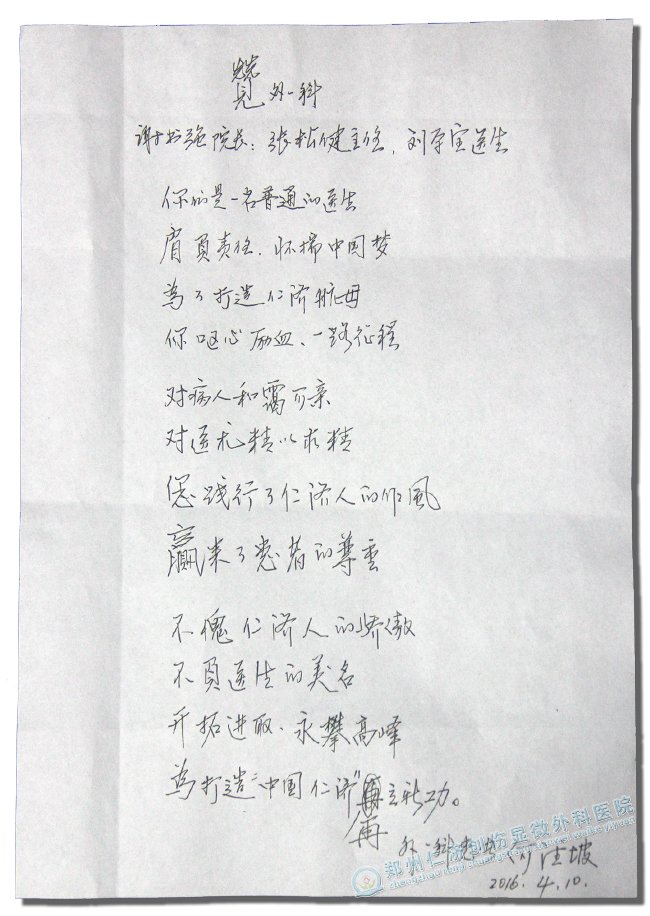 赞外一科
谢书强院长：张松健主任，刘军宝医生
你们是一名普通的医生
肩負责任、怀揣中国梦
為了打造仁济航母
你呕心励血、一路征程
对病人和霭可亲
对医术精以求精
您践行了仁济人的作風
贏来了患者的尊重
不愧仁济人的骄傲
不負医生的美名
开拓进取、永攀高峰
為打造“中国仁济”再立新功。
再
外一科患者
2016.4.10.
郑州仁济创伤显微外科医院